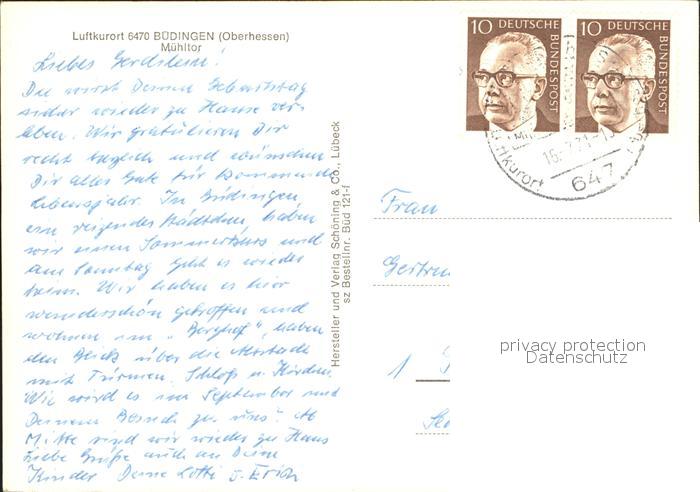 Luftkurort 6470 BÜDINGEN (Oberhessen)
Mühltor
Liebes Gerdslein!
Du wirst Deinen Geburtstag
sicher wieder zu Hause ver-
leben. Wir gratulieren Dir
recht täglich und wünschen
Dir alles Gute für kommende
Lebensjahr. In Büdingen,
ein reizendes Städtchen, haben
wir einen Sommerkurs und
am Sonntag geht es wieder
heim. Wir haben es hier
wunderschön getroffen und
wohnen im "Berghof", haben
den Blick über die Altstadt
mit Türmen, Schloß u. Kirchen.
Wie wird es im September mit
Deinem Besuch zu uns? Ab
Mitte sind wir wieder zu Haus
Liebe Grüße auch an Deine
Kinder Deine Lotti u. Erich
Hersteller und Verlag Schöning & Co., Lübeck
sz Bestellnr. Büd 121-f
10 DEUTSCHE BUNDESPOST
10 DEUTSCHE BUNDESPOST
Luftkurort
647
Frau
Gertru
1
privacy protection
Datenschutz